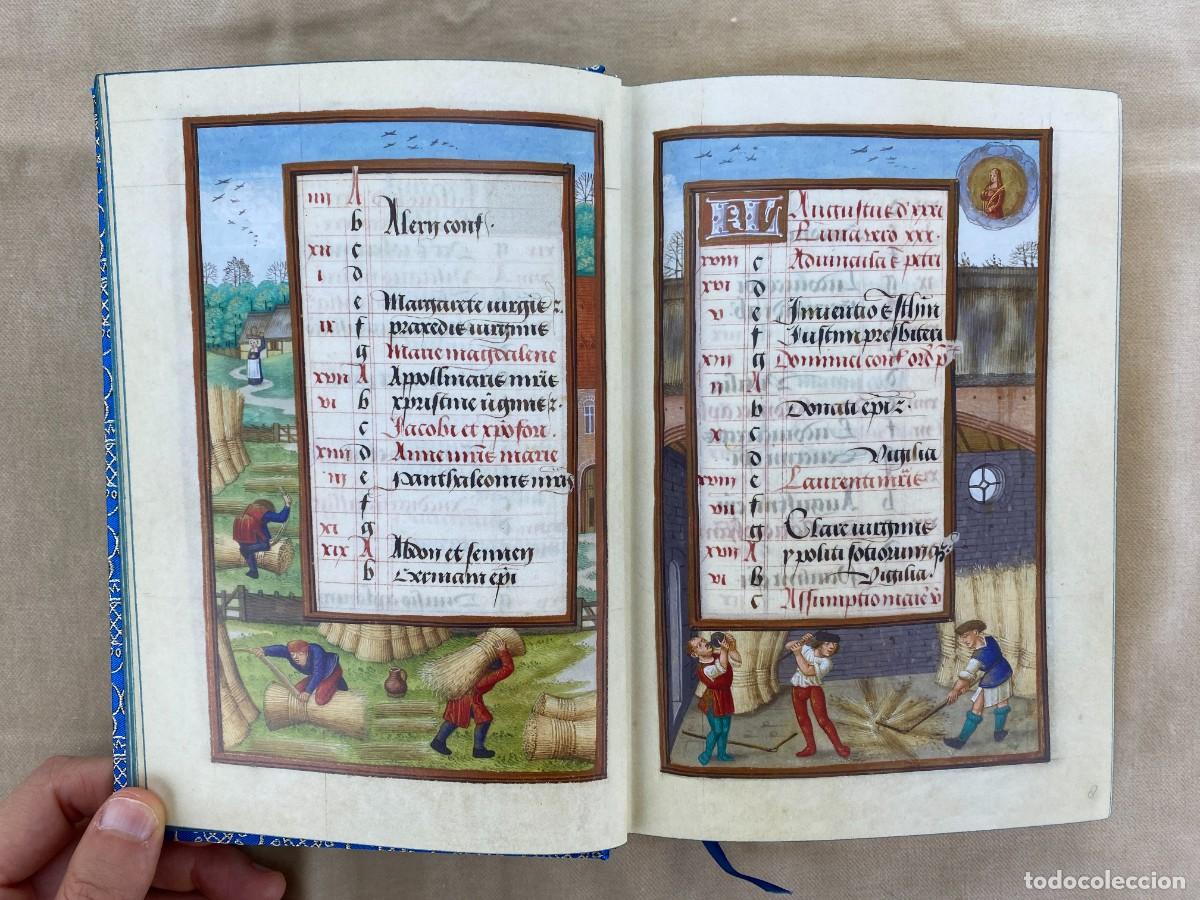 iiii A
b Alexii conf.
xii c
i d
e Margarete virginis
ix f praxedis virginis
g Marie magdalene
xvii A Appollinaris
vi b xpristine
c Jacobi et xpofori
xiiii d Anne marie
iii e panthaleonis
f
xi g
xix A Abdon et sennen
b Germani epi
KL Augustus
xxx.
xviii c Advincula S petri
xvi d
v e Inventio S
f Justini presbiteri
xiii g Dominici conf ord
ii A
b Donati epi
x c
d Vigilia
xviii e Laurentii
vii f
g Clare virginis
xvii A ypoliti sotiorum
vi b Vigilia.
c Assumptio marie v
8
todocoleccion